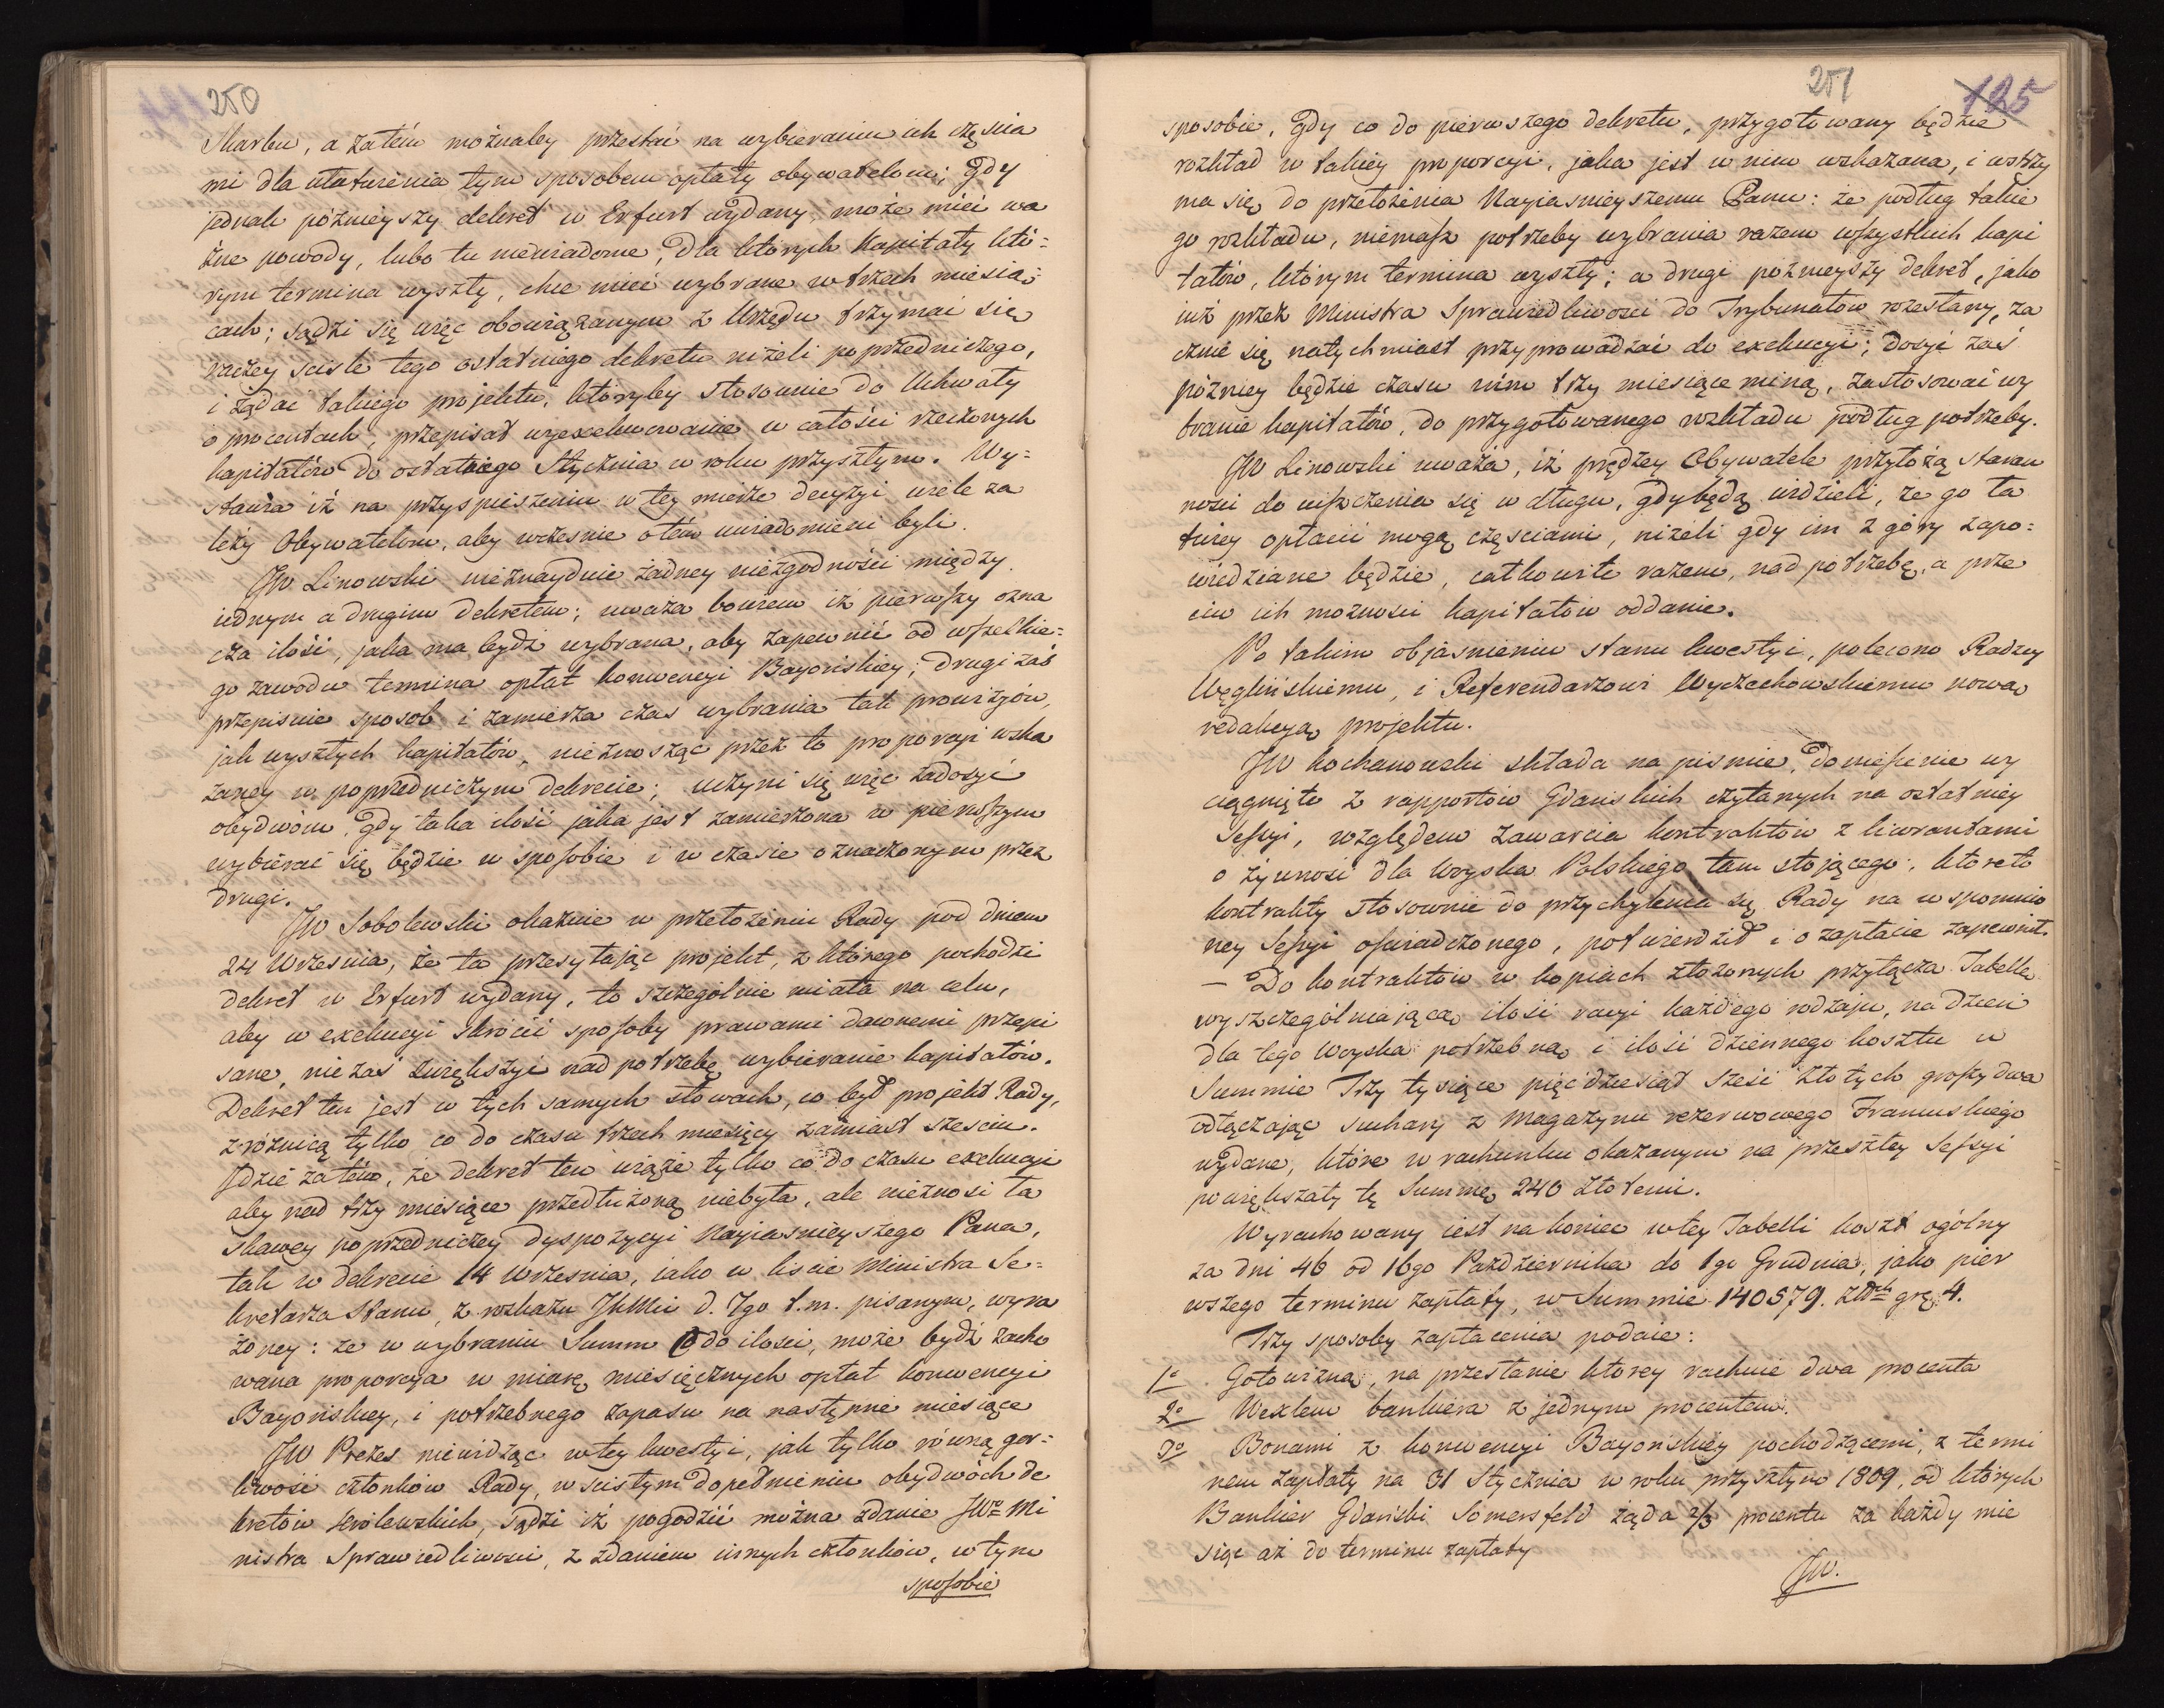 250
Skarbu, a zatém możnaby przestać na wybieraniu ich częścia
mi dla ułatwienia tym sposobem opłaty obywatelom; gdy
jednak późnieyszy dekret w Erfurt wydany, może mieć wa
żne powody, lubo tu niewiadome, dla których kapitały któ=
rym termina wyszły, chce mieć wybrane w trzech miesią=
cach; sądzi się więc obowiązanym z Urzędu trzymać się
raczey sciśle tego ostatniego dekretu niżeli poprzedniczego,
i żądać takiego projektu, któryby stosownie do Uchwały
o procentach, przepisał wyexekwowanie w całości rzeczonych
kapitałów do ostatniego Stycznia w roku przyszłym. Wy=
stawia iż na przyspieszeniu w tey mierze decyzyi wiele za
leży Obywatelom, aby wcześnie o tém uwiadomieni byli.
JW Linowski nieznayduie żadney niezgodności między
iednym a drugim dekretem; uważa bowiem iż pierwszy ozna
cza ilość, jaka ma bydź wybrana, aby zapewnić od wszelkie=
go zawodu termina opłat konwencyi Bayońskiey; drugi zaś
przepisuie sposob i zamierza czas wybrania tak prowizyów,
jak wyszłych kapitałów, nieznosząc przez to proporcyi wska
zaney w poprzedniczym dekrecie; uczyni się więc zadosyć
obydwóm, gdy taka ilość jaka jest zamierzona w pierwszym
wybierać się będzie w sposobie i w czasie oznaczonym przez
drugi.
JW Sobolewski okazuie w przełożeniu Rady pod dniem
24 Września, że ta przesyłając projekt, z którego pochodzi
dekret w Erfurt wydany, to szczególnie miała na celu,
aby w exekucyi skrócić sposoby prawami dawnemi przepi
sane, nie zaś zwiększyć nad potrzebę wybieranie kapitałów.
Dekret ten jest w tych samych słowach, co był projekt Rady,
z różnicą tylko co do czasu trzech miesięcy zamiast sześciu.
Idzie zatém, że dekret ten wiąże tylko co do czasu exekucyi
aby nad trzy miesiące przedłużoną niebyła, ale nieznosi ta
skawey poprzedniczey dyspozycyi Nayiaśnieyszego Pana,
tak w dekrecie 14 Września, iako w liście Ministra Se=
kretarza Stanu, z rozkazu JKMci d. 7go t.m. pisanym, wyra
żoney: że w wybraniu Summ co do ilości, może bydź zacho
wana proporcya w miarę miesięcznych opłat konwencyi
Bayońskiey, i potrzebnego zapasu na następne miesiące
JW Prezes niewidząc w tey kwestyi, jak tylko równą gor=
liwość członków Rady, w scisłym dopełnieniu obydwóch de
kretów królewskich, sądzi iż pogodzić można zdanie JWo Mi
nistra Sprawiedliwości, z zdaniem innych członków, w tym
sposobie
251
125
sposobie, gdy co do pierwszego dekretu, przygotowany będzie
rozkład w takiey proporcyi, jaka jest w nim wskazana, i wstrzy
ma się do przełożenia Nayiasnieyszemu Panu: że podług takie
go rozkładu, niemasz potrzeby wybrania razem wszystkich kapi
tałów, którym termina wyszły; a drugi poźnieyszy dekret, jako
iuż przez Ministra Sprawiedliwości do Trybunałów rozesłany, za
cznie się natychmiast przyprowadzać do exekucyi; dosyć zaś
pózniey będzie czasu nim trzy miesiące miną, zastosować wy
branie kapitałów, do przygotowanego rozkładu podług potrzeby.
JW Linowski uważa, iż prędzey Obywatele przyłożą staran
ności do uiszczenia się w długu, gdy będą widzieli, że go ła
twiey opłacić mogą częściami, niżeli gdy im z góry zapo=
wiedziane będzie, całkowite razem, nad potrzebę, a prze
ciw ich możności kapitałów oddanie.
Po takim objaśnieniu stanu kwestyi, polecono Radzcy
Węglińskiemu, i Referendarzowi Wyczechowskiemu nową
redakcyą projektu.
JW Kochanowski składa na pismie, doniesienie wy
ciągnięte z rapportów Gdańskich czytanych na ostatniey
Sessyi, względem zawarcia kontraktów z liwerantami
o żywność dla Woyska Polskiego tam stojącego, które to
kontrakty stosownie do przychylenia się Rady na wspomnio
ney Sessyi oświadczonego, potwierdził i o zapłacie zapewnił.
— Do kontraktów w kopiach złożonych przyłącza Tabellę
wyszczególniającą ilość racyi każdego rodzaju, na dzień
dla tego Woyska potrzebną i ilość dziennego kosztu w
Summie Trzy tysiące pięćdziesiąt sześć złotych groszy dwa
odłączając suchary z Magazynu rezerwowego Francuskiego
wydane, które w rachunku okazanym na przeszłey Sessyi
powiększały tę Summę 240 złotemi.
Wyrachowany iest nakoniec w tey Tabelli koszt ogólny
za dni 46 od 16go Października do 1go Grudnia, jako pier
wszego terminu zapłaty, w Summie 140579. Złtch grę. 4.
Trzy sposoby zapłacenia podaie:
1o Gotowizną, na przesłanie którey rachuie dwa procenta
2o Wexlem bankiera z jednym procentem.
3o Bonami z konwencyi Bayońskiey pochodzącemi, z termi
nem zapłaty na 31 Stycznia w roku przyszłym 1809, od których
Bankier Gdański Somersfeld żąda 2/3 procentu za każdy mie
siąc aż do terminu zapłaty
JW.